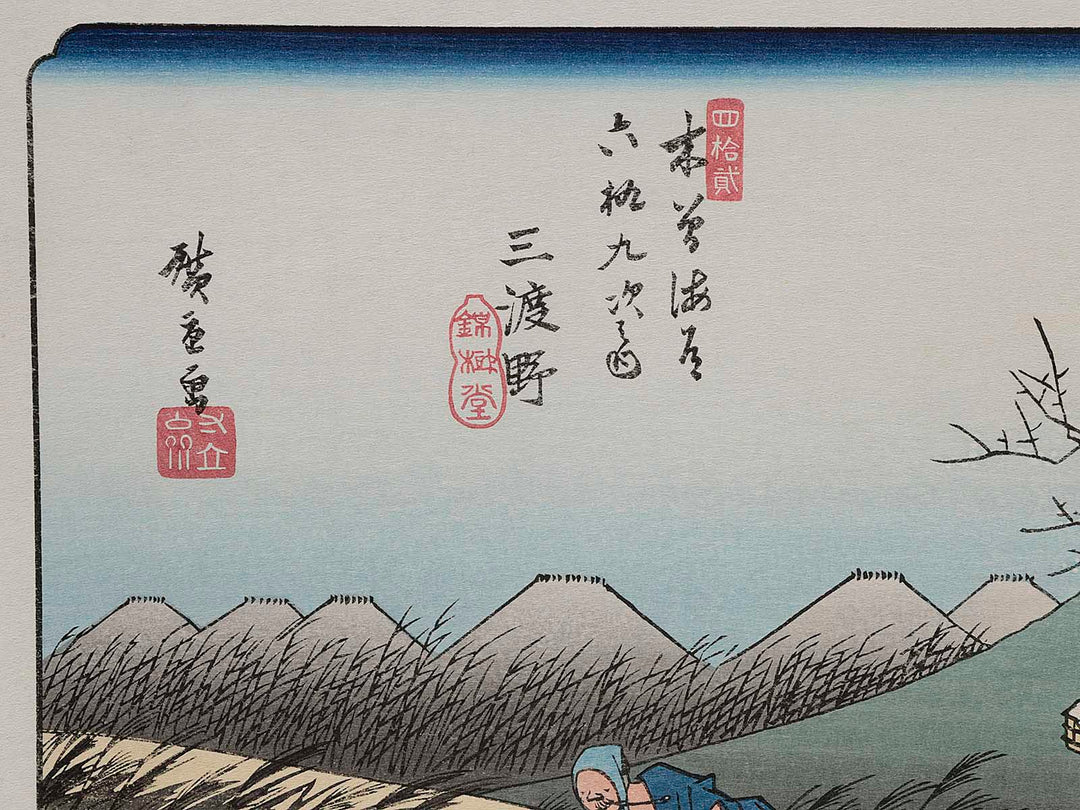 四拾貳
木曽海道
六拾九次之内
三渡野
錦樹堂
廣重画